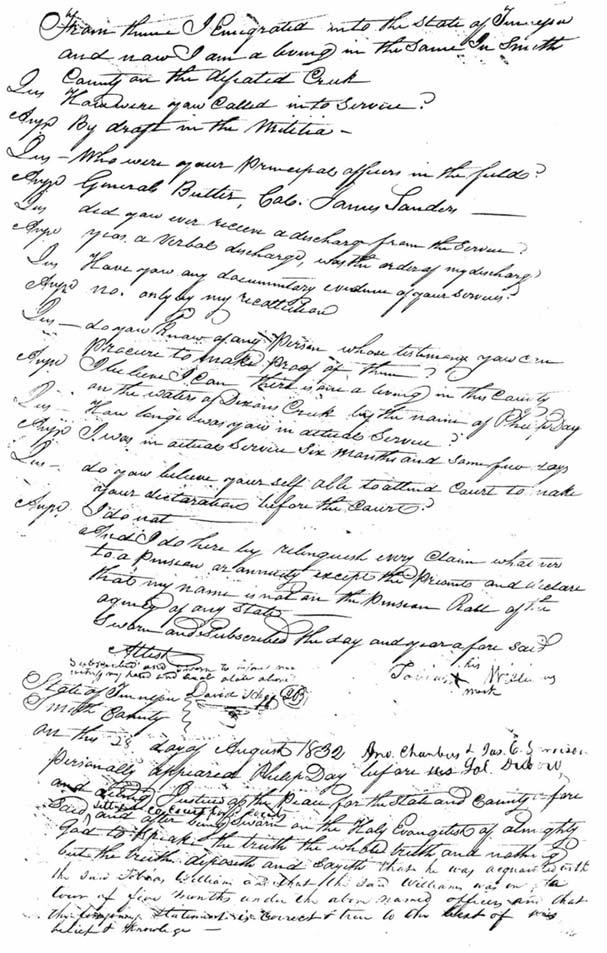 From thence I Emigrated into the State of Tennessee
and now I am a living in the same In Smith
County on the defeated Creek
Qus How were you Called into Service?
Answ By draft in the Militia –
Qus – Who were your Principal officers in the field?
Answ General Butler, Colo. James Sanders —
Qus did you ever receive a discharge from the Service?
Answ yes. a Verbal discharge, was the order of my discharge
Qus Have you any documentary evidence of your services?
Answ no. only by my recollection
Qus – do you know of any Person whose testimony you can
procure to make Proof of them?
Answ I believe I can there is one a living in this County
on the waters of Dixons Creek by the name of Philip Day
Qus – How longe was you in actual Service?
Answ I was in actual Service Six months and some few days
Qus – do you believe your self able to attend Court to make
your declaration before the Court?
Answ I do not —
And I do here by relinquish every Claim what ever
to a Pension or annuity except the Present and declare
that my name is not on the Pension Roll of the
agency of any State —
Sworn and Subscribed the day and year afore said
Attest
Subscribed and sworn to before me
witness my hand and seal date above
his
Tobias X Williams
mark
State of Tennessee David
Smith County
on this 28 day of August 1832 Jno. Chambers & Jas. C.
Personally appeared Philip Day before
and Justices of the Peace for the State and County afore
Said, and after being Sworn on the Holy Evangelist of almighty
God to Speak the truth the whole truth and nothing
but the truth deposeth and Sayeth that he was acquainted with
the said Tobias William and that the said Williams was on a
tour of five months under the above named officers and that
the foregoing Statement is Correct & true to the best of his
belief & knowledge –